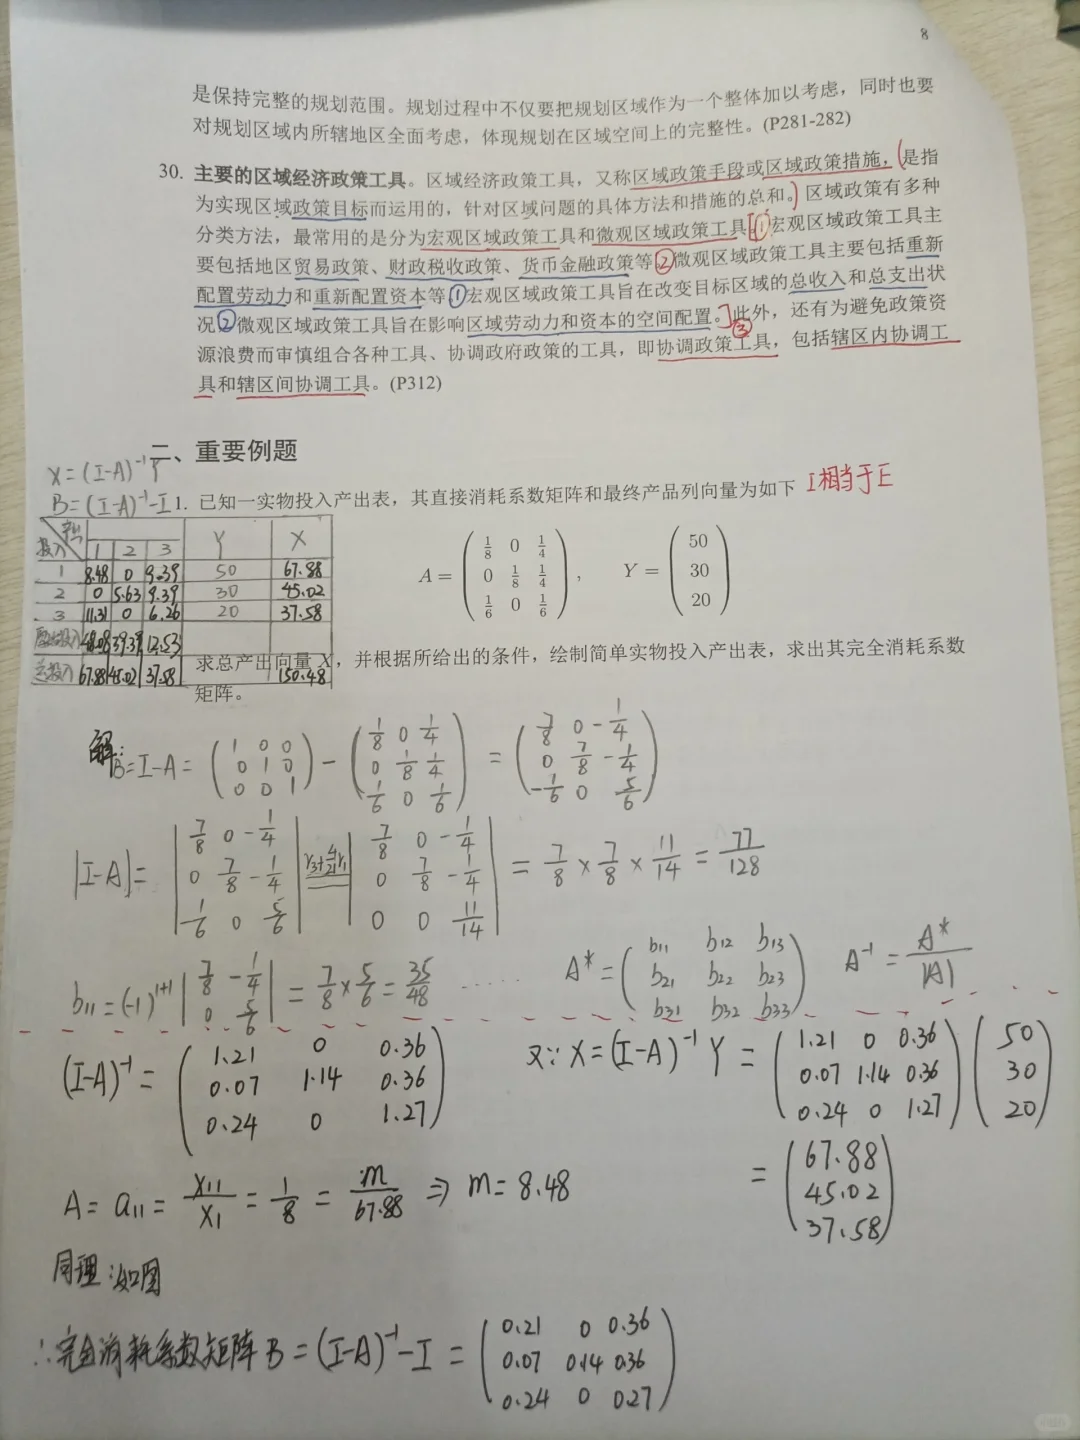 8
是保持完整的规划范围。规划过程中不仅要把规划区域作为一个整体加以考虑，同时也要
对规划区域内所辖地区全面考虑，体现规划在区域空间上的完整性。(P281-282)
30. 主要的区域经济政策工具。区域经济政策工具，又称区域政策手段或区域政策措施，(是指
为实现区域政策目标而运用的，针对区域问题的具体方法和措施的总和。) 区域政策有多种
分类方法，最常用的是分为宏观区域政策工具和微观区域政策工具。[①宏观区域政策工具主
要包括地区贸易政策、财政税收政策、货币金融政策等②微观区域政策工具主要包括重新
配置劳动力和重新配置资本等①宏观区域政策工具旨在改变目标区域的总收入和总支出状
况②微观区域政策工具旨在影响区域劳动力和资本的空间配置。]此外，还有为避免政策资
③
源浪费而审慎组合各种工具、协调政府政策的工具，即协调政策工具，包括辖区内协调工
具和辖区间协调工具。(P312)
二、重要例题
X=(I-A)⁻¹Y
B=(I-A)⁻¹-I
1. 已知一实物投入产出表，其直接消耗系数矩阵和最终产品列向量为如下 I相当于E
投入 产出 1 2 3 Y X
1 8.48 0 9.39 50 67.88
2 0 5.63 9.39 30 45.02
3 11.31 0 6.26 20 37.58
48.08 39.39 12.53
总投入 67.88 45.02 37.58 150.48
A = ( 1/8 0 1/4
0 1/8 1/4
1/6 0 1/6 ),
Y = ( 50
30
20 )
求总产出向量 X，并根据所给出的条件，绘制简单实物投入产出表，求出其完全消耗系数
矩阵。
解: B=I-A= ( 1 0 0
0 1 0
0 0 1 ) - ( 1/8 0 1/4
0 1/8 1/4
1/6 0 1/6 ) = ( 7/8 0 -1/4
0 7/8 -1/4
-1/6 0 5/6 )
|I-A|= | 7/8 0 -1/4
0 7/8 -1/4
-1/6 0 5/6 | r₃+4/21r₁ | 7/8 0 -1/4
0 7/8 -1/4
0 0 11/14 | = 7/8 × 7/8 × 11/14 = 77/128
b₁₁=(-1)¹⁺¹ | 7/8 -1/4
0 5/6 | = 7/8×5/6=35/48 ......
A*= ( b₁₁ b₁₂ b₁₃
b₂₁ b₂₂ b₂₃
b₃₁ b₃₂ b₃₃ )
A⁻¹=A*/|A|
(I-A)⁻¹= ( 1.21 0 0.36
0.07 1.14 0.36
0.24 0 1.27 )
又∵X=(I-A)⁻¹Y = ( 1.21 0 0.36
0.07 1.14 0.36
0.24 0 1.27 ) ( 50
30
20 )
= ( 67.88
45.02
37.58 )
A= a₁₁= X₁₁/X₁ = 1/8 = m/67.88 ⇒ m=8.48
同理:如图
∴完全消耗系数矩阵 B=(I-A)⁻¹-I = ( 0.21 0 0.36
0.07 0.14 0.36
0.24 0 0.27 )